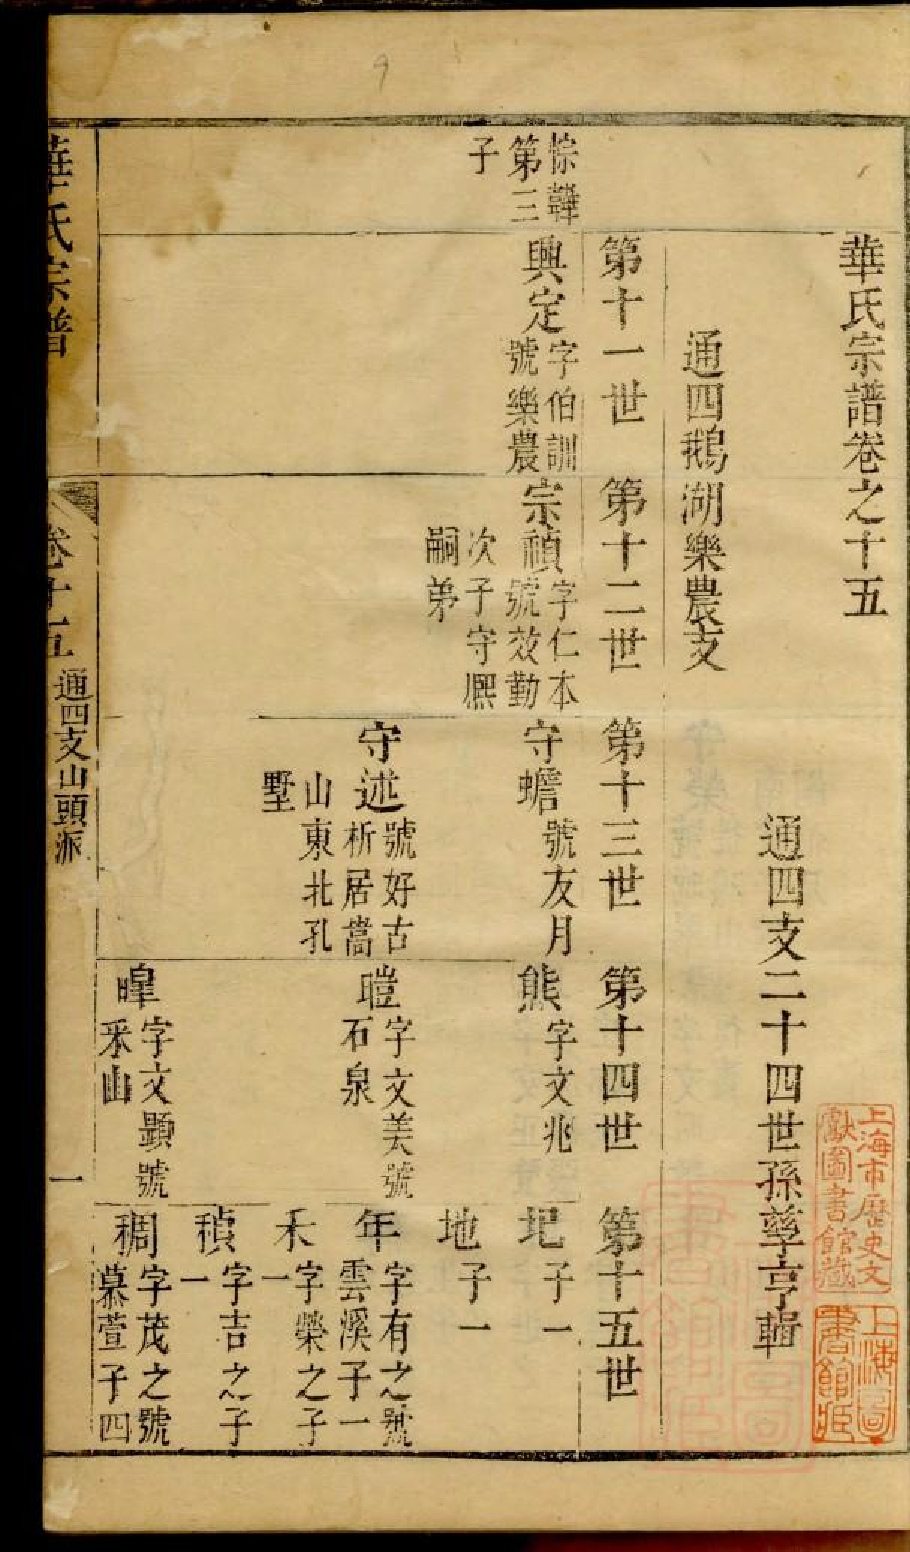 華氏宗譜卷之十五
通四支二十四世孫孳亨輯
通四鵝湖樂農支
第十一世
第十二世
第十三世
第十四世
第十五世
悰韡
第三
子
興定
字伯訓
號樂農
宗禎
字仁本
號效勤
次子守熈
嗣弟
守蟾
號友月
熊
字文兆
圯
子一
地
子一
守述
號好古
析居嵩
山東北孔
墅
暟
字文美號
石泉
年
字有之號
雲溪子一
禾
字榮之子
一
稹
字吉之子
一
暭
字文顯號
釆山
稠
字茂之號
慕萱子四
華氏宗譜
卷十五
通四支山頭派
一
上海市歷史文
獻圖書館藏
上海圖
書館藏